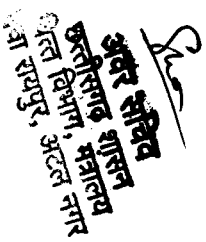 अवर सचिव
छत्तीसगढ़ शासन
वित्त विभाग, मंत्रालय
नवा रायपुर, अटल नगर